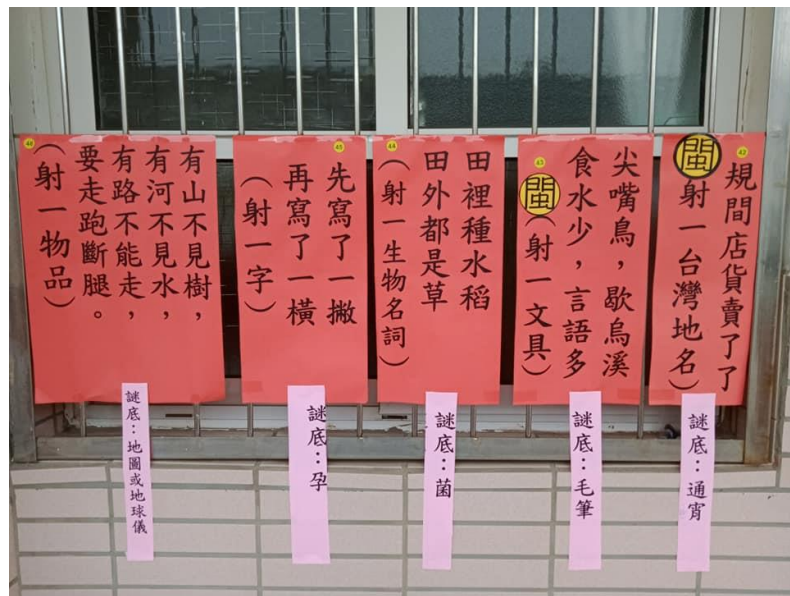 42
規間店貨賣了了
閩 射一台灣地名)
謎底：通宵
43
尖嘴鳥，歇烏溪
食水少，言語多
閩(射一文具)
謎底：毛筆
44
田裡種水稻
田外都是草
(射一生物名詞)
謎底：菌
45
先寫了一撇
再寫了一橫
(射一字)
謎底：孕
有山不見樹，
有河不見水，
有路不能走，
要走跑斷腿。
(射一物品)
謎底：地圖或地球儀